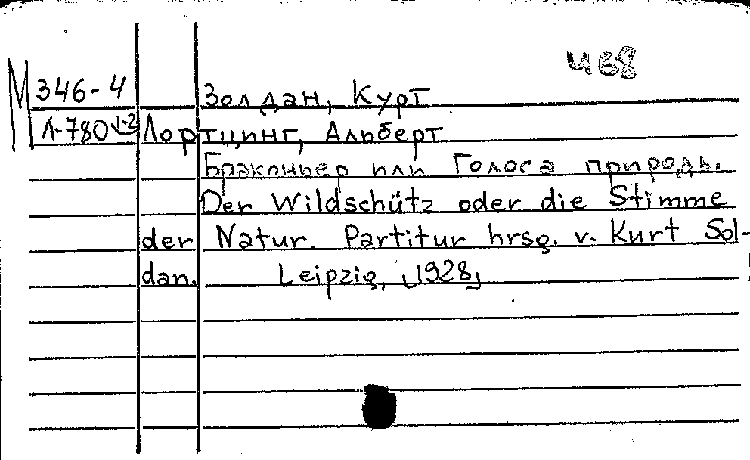 ч68
М 346-4 Золдан, Курт
Л-780 Лортцинг, Альберт
Браконьер или Голоса природы.
Der Wildschütz oder die Stimme
der Natur. Partitur hrsg. v. Kurt Sol-
dan. Leipzig, [1928]